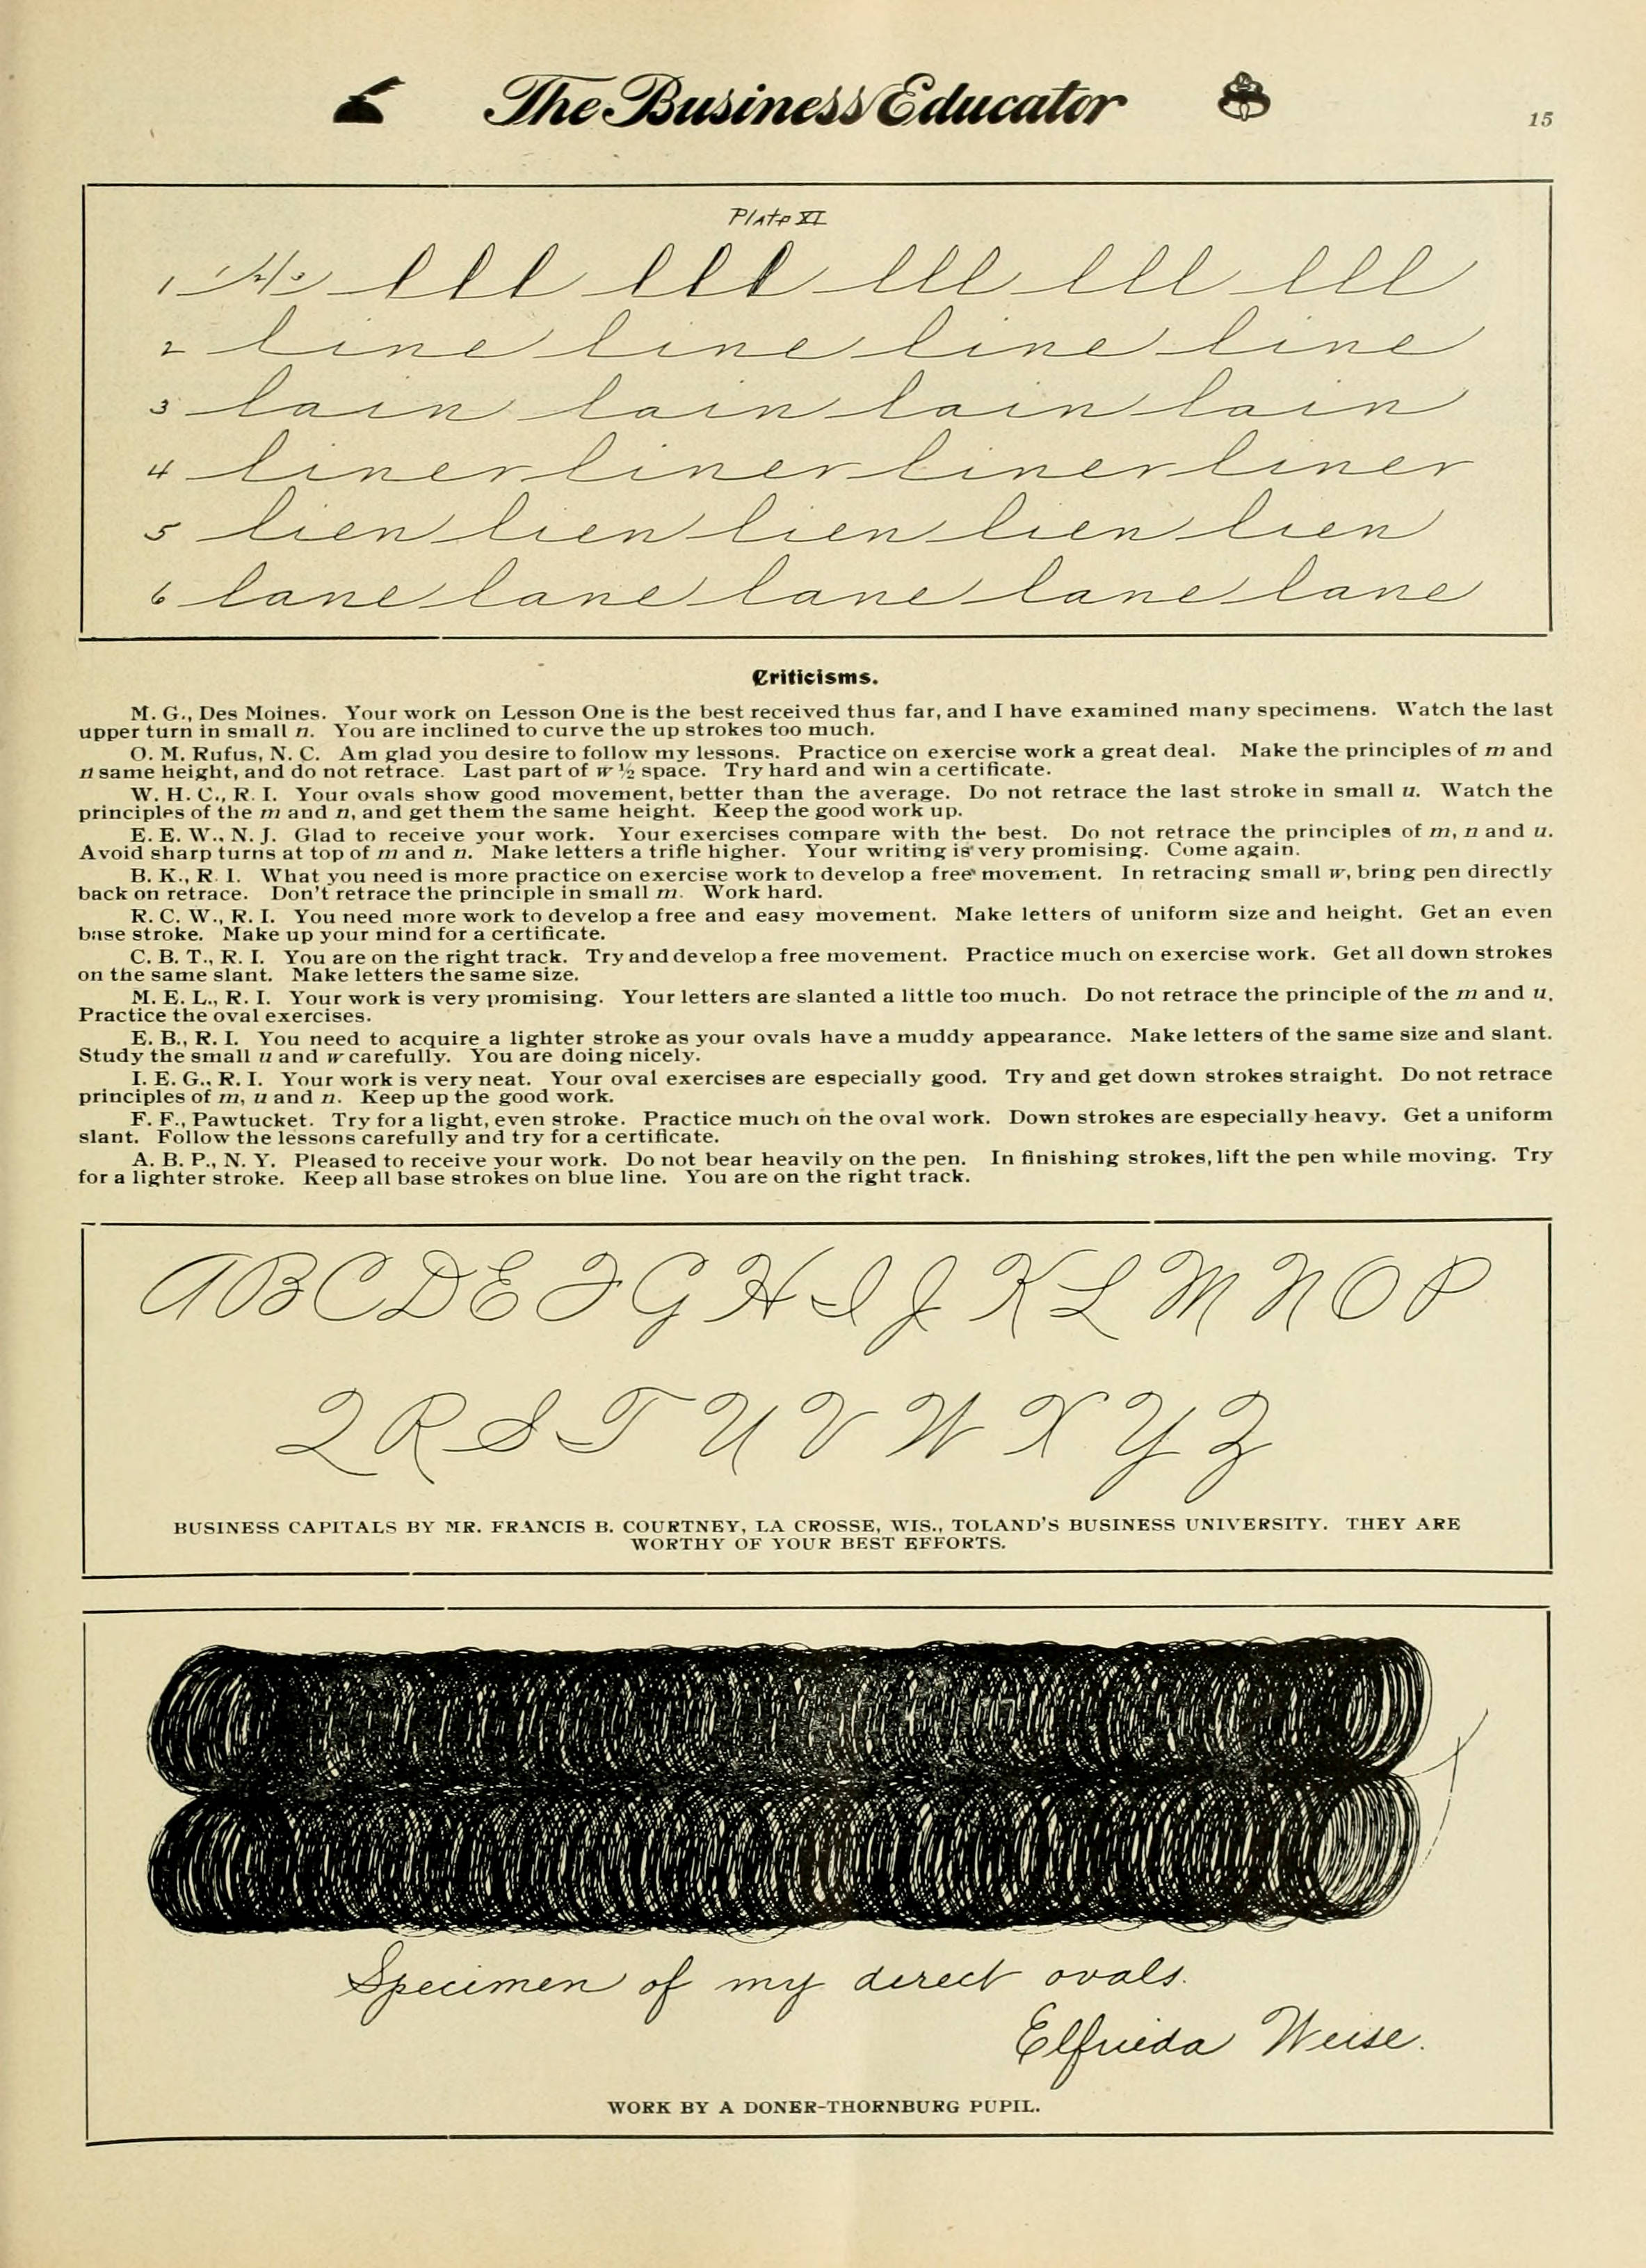 The Business Educator
15
Plate XI
1 l l l l l l lll lll lll
2 line line line line
3 lain lain lain lain
4 liner liner liner liner
5 lien lien lien lien lien
6 lane lane lane lane lane
Criticisms.
M. G., Des Moines. Your work on Lesson One is the best received thus far, and I have examined many specimens. Watch the last
upper turn in small n. You are inclined to curve the up strokes too much.
O. M. Rufus, N. C. Am glad you desire to follow my lessons. Practice on exercise work a great deal. Make the principles of m and
n same height, and do not retrace. Last part of w ½ space. Try hard and win a certificate.
W. H. C., R. I. Your ovals show good movement, better than the average. Do not retrace the last stroke in small u. Watch the
principles of the m and n, and get them the same height. Keep the good work up.
E. E. W., N. J. Glad to receive your work. Your exercises compare with the best. Do not retrace the principles of m, n and u.
Avoid sharp turns at top of m and n. Make letters a trifle higher. Your writing is very promising. Come again.
B. K., R. I. What you need is more practice on exercise work to develop a free movement. In retracing small w, bring pen directly
back on retrace. Don't retrace the principle in small m. Work hard.
R. C. W., R. I. You need more work to develop a free and easy movement. Make letters of uniform size and height. Get an even
base stroke. Make up your mind for a certificate.
C. B. T., R. I. You are on the right track. Try and develop a free movement. Practice much on exercise work. Get all down strokes
on the same slant. Make letters the same size.
M. E. L., R. I. Your work is very promising. Your letters are slanted a little too much. Do not retrace the principle of the m and u.
Practice the oval exercises.
E. B., R. I. You need to acquire a lighter stroke as your ovals have a muddy appearance. Make letters of the same size and slant.
Study the small u and w carefully. You are doing nicely.
I. E. G., R. I. Your work is very neat. Your oval exercises are especially good. Try and get down strokes straight. Do not retrace
principles of m, u and n. Keep up the good work.
F. F., Pawtucket. Try for a light, even stroke. Practice much on the oval work. Down strokes are especially heavy. Get a uniform
slant. Follow the lessons carefully and try for a certificate.
A. B. P., N. Y. Pleased to receive your work. Do not bear heavily on the pen. In finishing strokes, lift the pen while moving. Try
for a lighter stroke. Keep all base strokes on blue line. You are on the right track.
A B C D E F G H I J K L M N O P
Q R S T U V W X Y Z
BUSINESS CAPITALS BY MR. FRANCIS B. COURTNEY, LA CROSSE, WIS., TOLAND'S BUSINESS UNIVERSITY. THEY ARE
WORTHY OF YOUR BEST EFFORTS.
Specimen of my direct ovals.
Elfrieda Weise.
WORK BY A DONER-THORNBURG PUPIL.